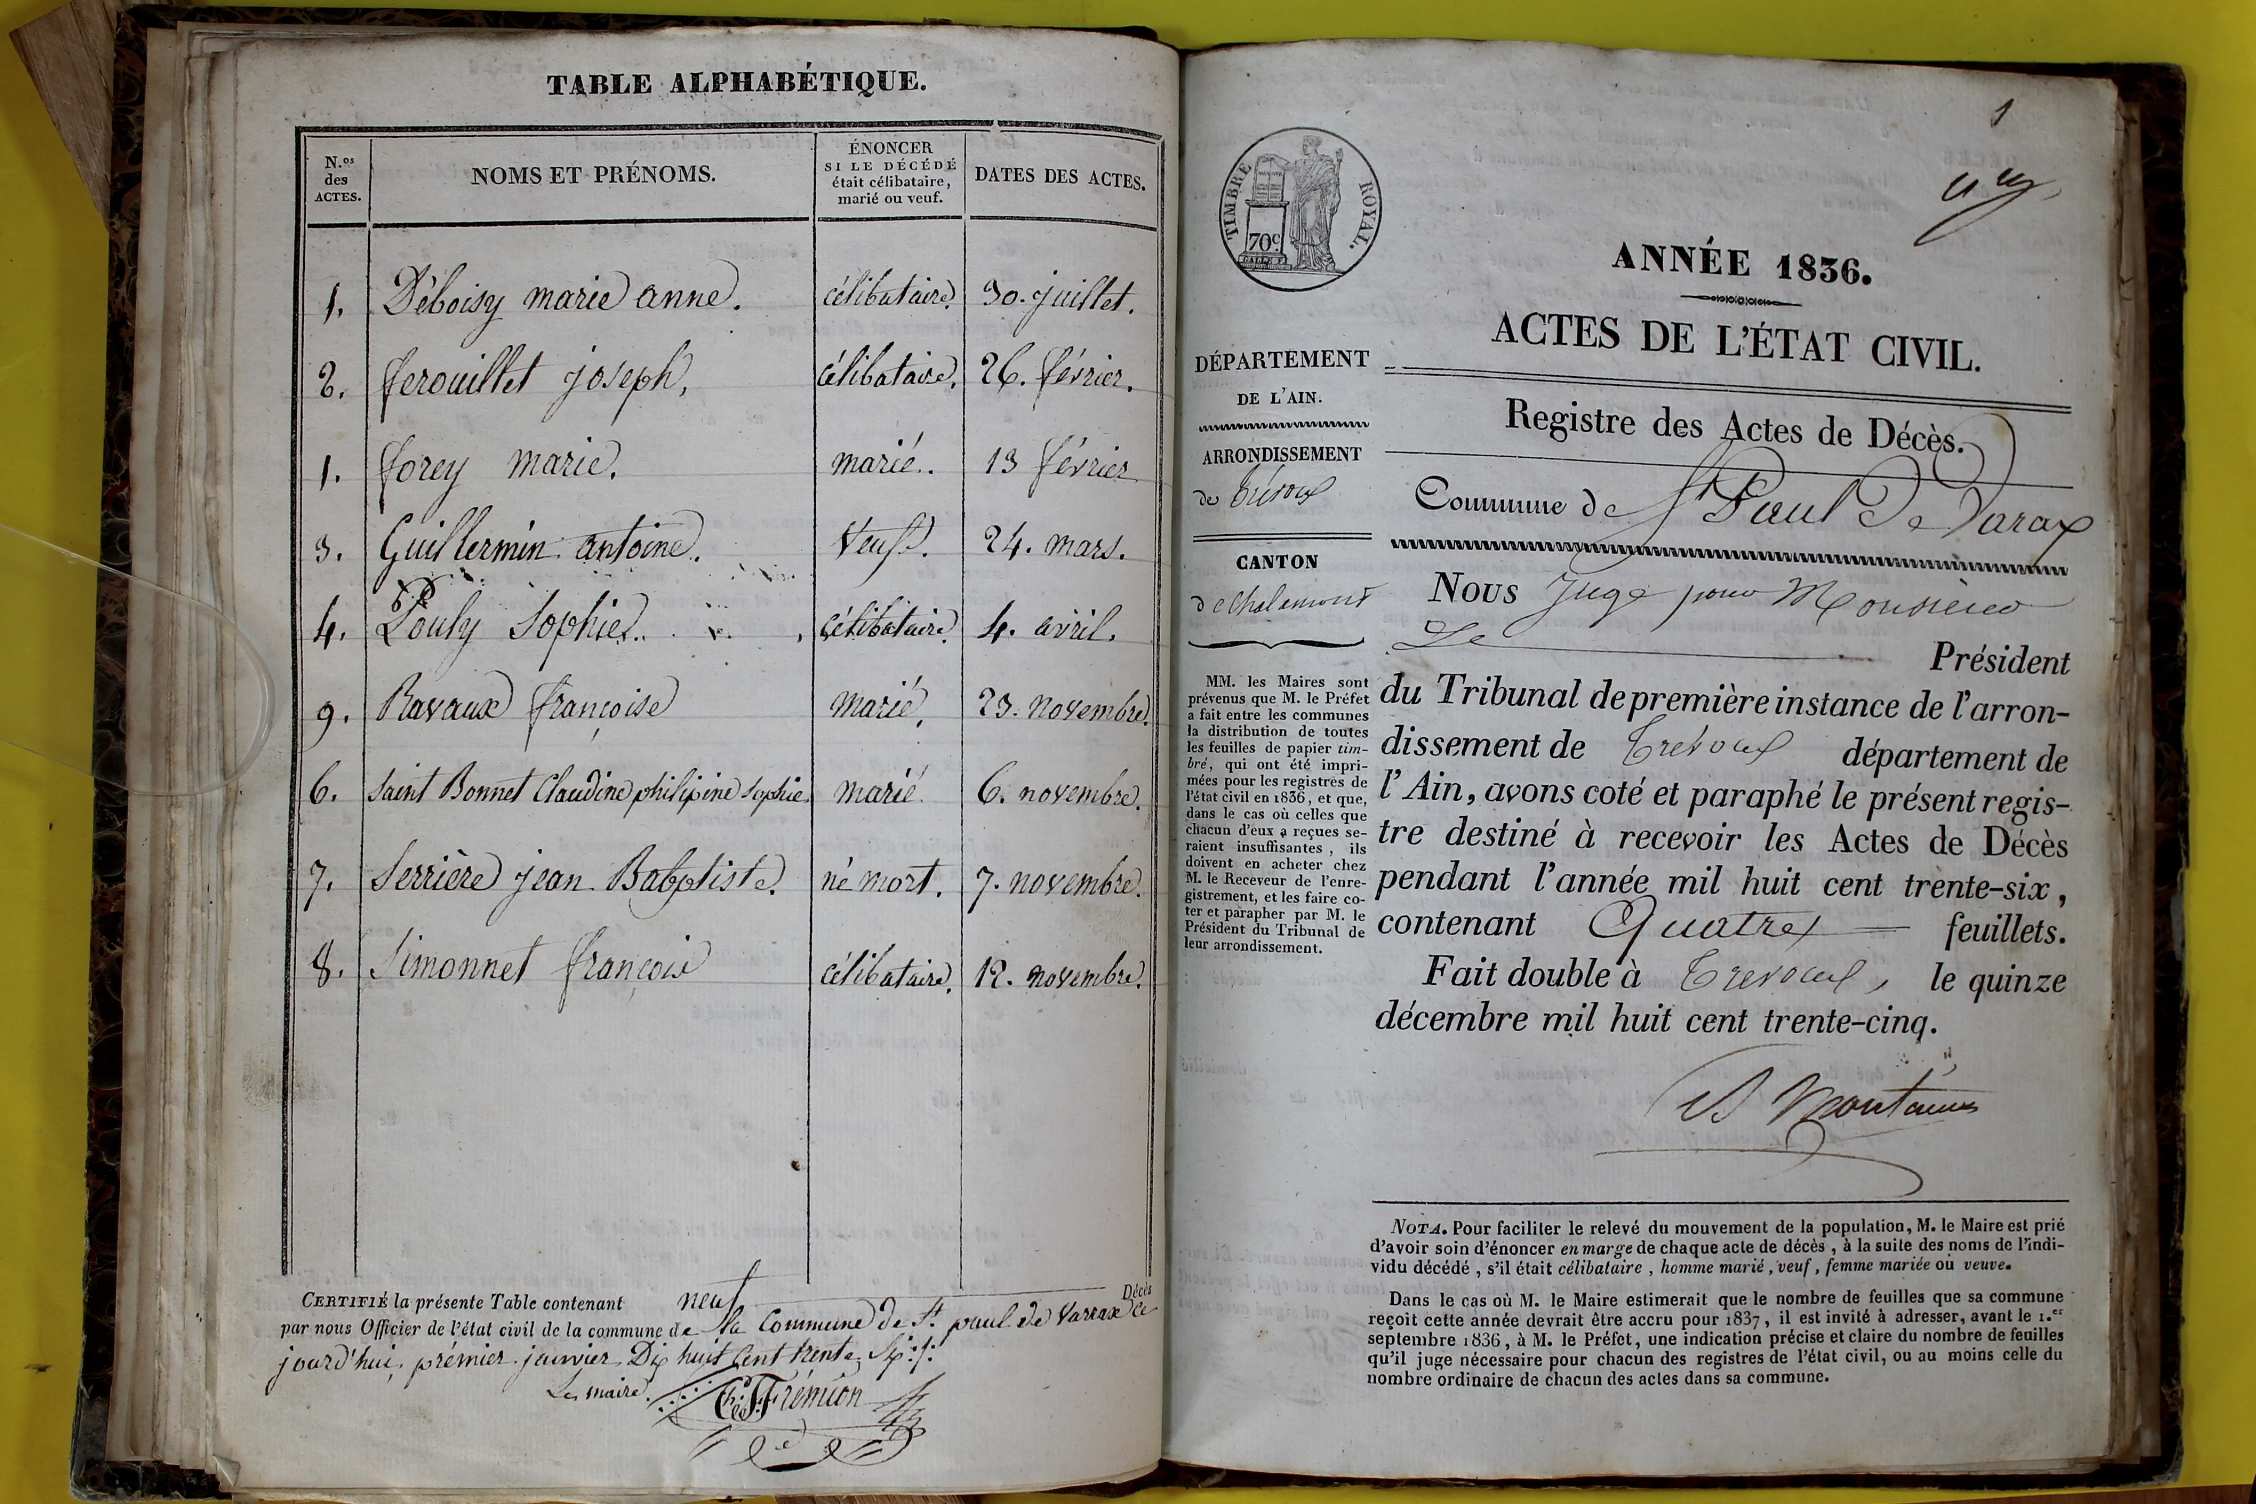 TABLE ALPHABÉTIQUE.
N.os des ACTES.
NOMS ET PRÉNOMS.
ÉNONCER
SI LE DÉCÉDÉ
était célibataire,
marié ou veuf.
DATES DES ACTES.
1. Déboisy marie anne. célibataire. 30. juillet.
2. ferouillet joseph, célibataire. 26. février.
1. forey marie. marié. 13 février
3. Guillermin antoine. Veuf. 24. mars.
4. Pouly Sophie. célibataire. 4. avril.
9. Ravaux françoise marié. 23. novembre.
6. Saint Bonnet Claudine philipine sophie. marié 6. novembre.
7. Serrière jean Baptiste. né mort. 7. novembre.
8. Simonnet françois célibataire. 12. novembre.
CERTIFIÉ la présente Table contenant neuf Décès
par nous Officier de l'état civil de la commune de la Commune de St. paul de Varrax ce
jourd'hui, prémier janvier Dix huit Cent trente
Le maire.
Frémion
1
TIMBRE ROYAL.
70c.
ANNÉE 1836.
ACTES DE L'ÉTAT CIVIL.
Registre des Actes de Décès.
Commune de St Paul De Varax
DÉPARTEMENT
DE L'AIN.
ARRONDISSEMENT
de Trévoux
CANTON
de Chalamont
MM. les Maires sont
prévenus que M. le Préfet
a fait entre les communes
la distribution de toutes
les feuilles de papier tim-
bré, qui ont été impri-
mées pour les registres de
l'état civil en 1836, et que,
dans le cas où celles que
chacun d'eux a reçues se-
raient insuffisantes, ils
doivent en acheter chez
M. le Receveur de l'enre-
gistrement, et les faire co-
ter et parapher par M. le
Président du Tribunal de
leur arrondissement.
Nous Juge pour Monsieur
Le Président
du Tribunal de première instance de l'arron-
dissement de Trevoux département de
l'Ain, avons coté et paraphé le présent regis-
tre destiné à recevoir les Actes de Décès
pendant l'année mil huit cent trente-six,
contenant Quatre feuillets.
Fait double à Trevoux, le quinze
décembre mil huit cent trente-cinq.
NOTA. Pour faciliter le relevé du mouvement de la population, M. le Maire est prié
d'avoir soin d'énoncer en marge de chaque acte de décès, à la suite des noms de l'indi-
vidu décédé, s'il était célibataire, homme marié, veuf, femme mariée ou veuve.
Dans le cas où M. le Maire estimerait que le nombre de feuilles que sa commune
reçoit cette année devrait être accru pour 1837, il est invité à adresser, avant le 1.er
septembre 1836, à M. le Préfet, une indication précise et claire du nombre de feuilles
qu'il juge nécessaire pour chacun des registres de l'état civil, ou au moins celle du
nombre ordinaire de chacun des actes dans sa commune.